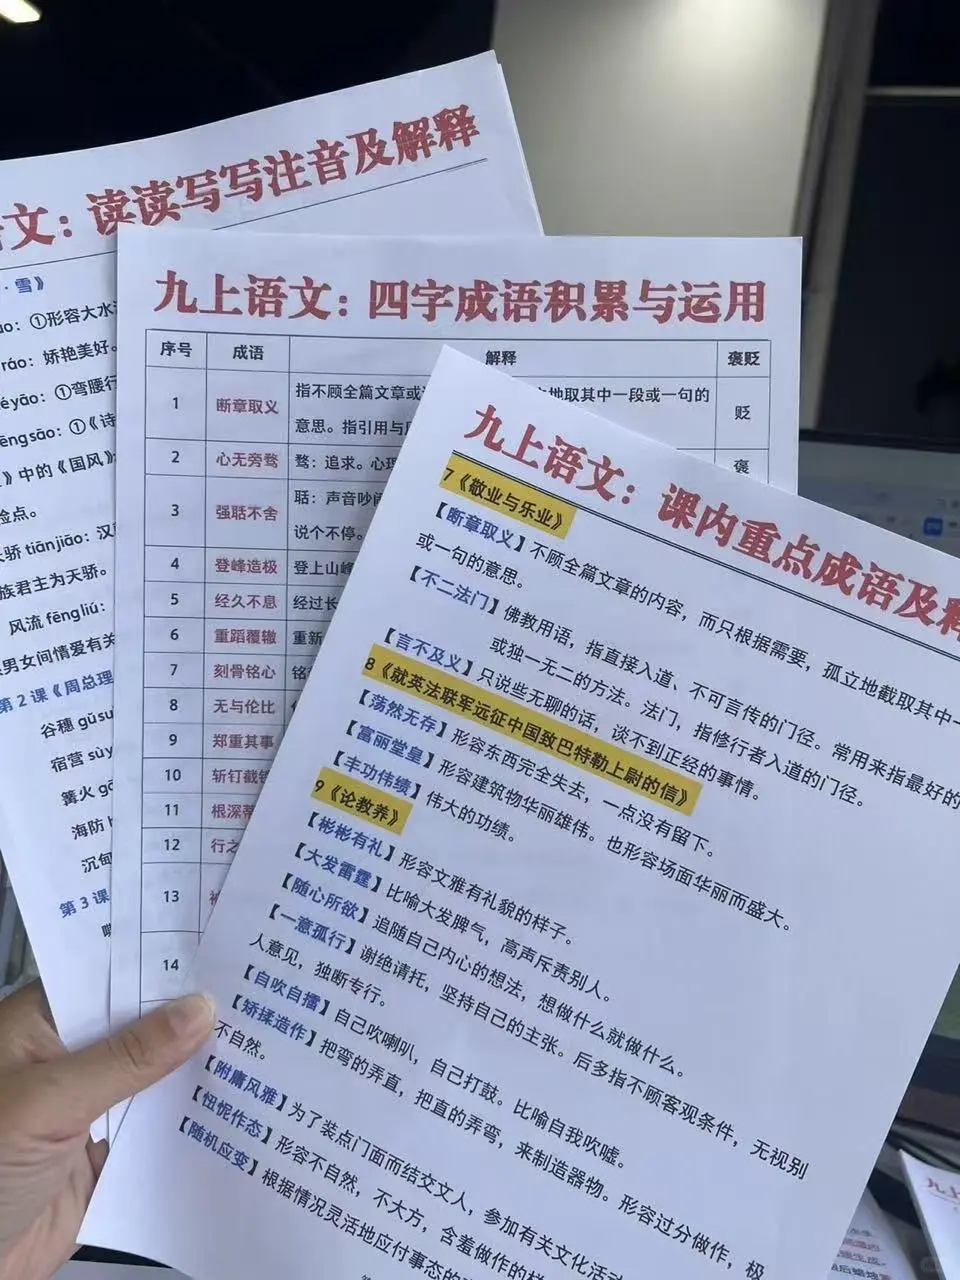 文：读读写写注音及解释
·雪》
áo：①形容大水
ráo：娇艳美好。
éyāo：①弯腰行
ēngsāo：①《诗
》中的《国风》
俭点。
天骄 tiānjiāo：汉
族君主为天骄。
风流 fēngliú：
男女间情爱有关
第2课《周总理
谷穗 gǔsu
宿营 sùy
篝火 gō
海防 h
沉甸
第3课
九上语文：四字成语积累与运用
序号 成语 解释 褒贬
1 断章取义 指不顾全篇文章或 地取其中一段或一句的
意思。指引用与 贬
2 心无旁骛 骛：追求。心 褒
3 强聒不舍 聒：声音吵闹
说个不停。
4 登峰造极 登上山峰
5 经久不息 经过长
6 重蹈覆辙 重新
7 刻骨铭心 铭
8 无与伦比
9 郑重其事
10 斩钉截铁
11 根深蒂
12 行之
13
14
九上语文：课内重点成语及释
7《敬业与乐业》
【断章取义】不顾全篇文章的内容，而只根据需要，孤立地截取其中一
或一句的意思。
【不二法门】佛教用语，指直接入道、不可言传的门径。常用来指最好的
或独一无二的方法。法门，指修行者入道的门径。
【言不及义】只说些无聊的话，谈不到正经的事情。
8《就英法联军远征中国致巴特勒上尉的信》
【荡然无存】形容东西完全失去，一点没有留下。
【富丽堂皇】形容建筑物华丽雄伟。也形容场面华丽而盛大。
【丰功伟绩】伟大的功绩。
9《论教养》
【彬彬有礼】形容文雅有礼貌的样子。
【大发雷霆】比喻大发脾气，高声斥责别人。
【随心所欲】追随自己内心的想法，想做什么就做什么。
【一意孤行】谢绝请托，坚持自己的主张。后多指不顾客观条件，无视别
人意见，独断专行。
【自吹自擂】自己吹喇叭，自己打鼓。比喻自我吹嘘。
【矫揉造作】把弯的弄直，把直的弄弯，来制造器物。形容过分做作，极
不自然。
【附庸风雅】为了装点门面而结交文人，参加有关文化活动
【忸怩作态】形容不自然，不大方，含羞做作的样
【随机应变】根据情况灵活地应付事态的